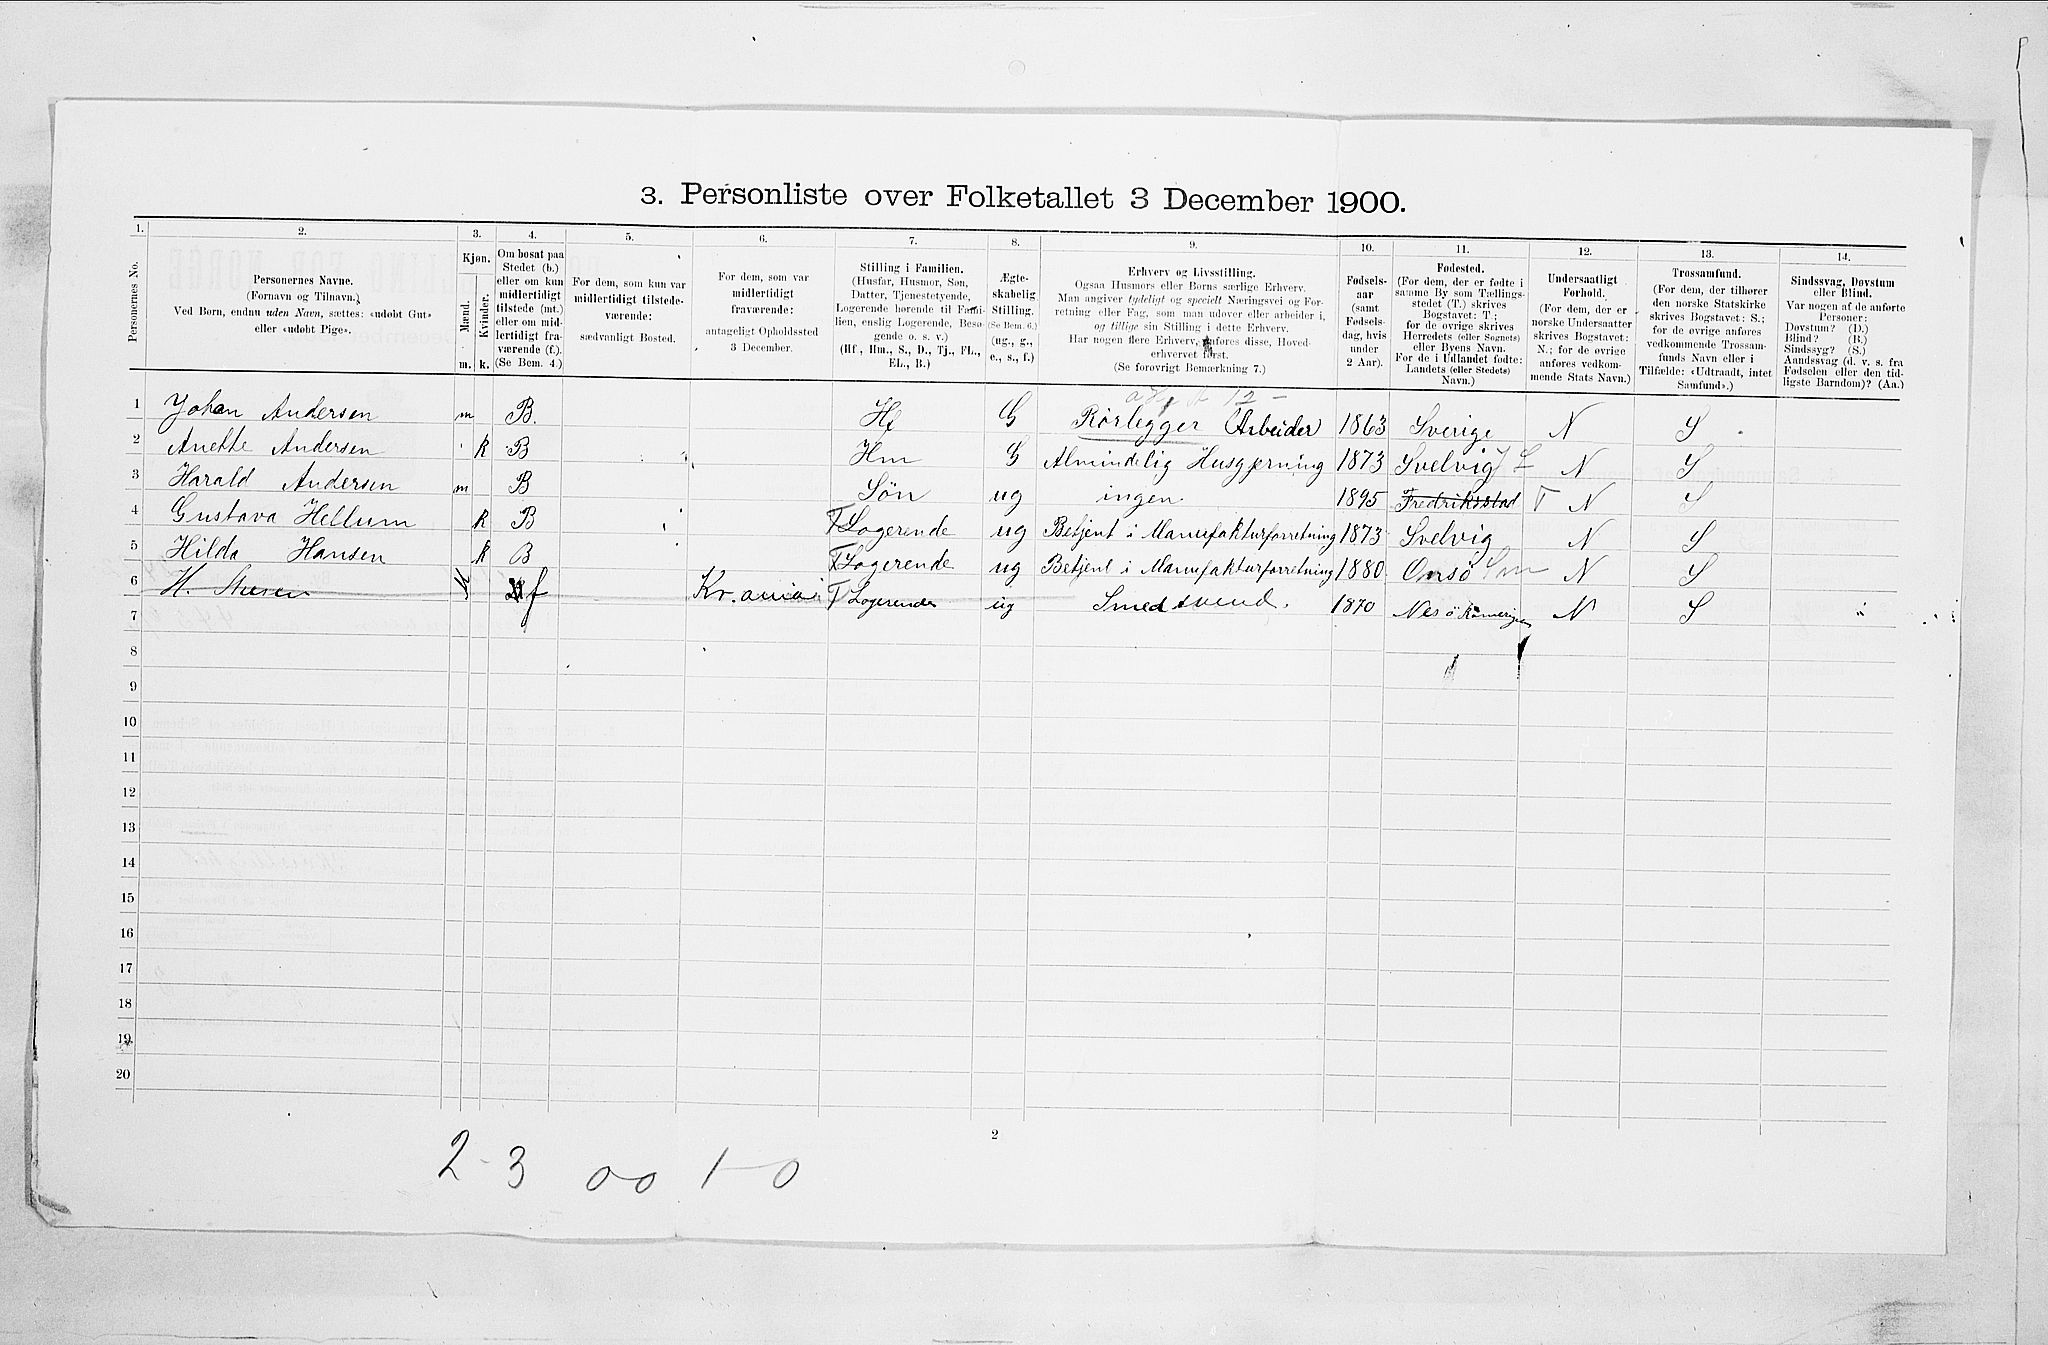 3. Personliste over Folketallet 3 December 1900.
1. 2. 3. 4. 5. 6. 7. 8. 9. 10. 11. 12. 13. 14.
Personernes No.
Personernes Navne.
(Fornavn og Tilnavn.)
Ved Børn, endnu uden Navn, sættes: «udøbt Gut»
eller «udøbt Pige».
Kjøn.
Mænd.
Kvinder.
m. k.
Om bosat paa
Stedet (b.)
eller om kun
midlertidigt
tilstede (mt.)
eller om mid-
lertidigt fra-
værende (f.).
(Se Bem. 4.)
For dem, som kun var
midlertidigt tilstede-
værende:
sædvanligt Bosted.
For dem, som var
midlertidigt
fraværende:
antageligt Opholdssted
3 December.
Stilling i Familien.
(Husfar, Husmor, Søn,
Datter, Tjenestetyende,
Logerende hørende til Fami-
lien, enslig Logerende, Besø-
gende o. s. v.)
(Hf., Hm., S., D., Tj., FL.,
EL., B.)
Ægte-
skabelig
Stilling.
(Se Bem. 6.)
(ug., g.,
e., s., f.)
Erhverv og Livsstilling.
Ogsaa Husmors eller Børns særlige Erhverv.
Man angiver tydeligt og specielt Næringsvei og For-
retning eller Fag, som man udover eller arbeider i,
og tillige sin Stilling i dette Erhverv.
Har nogen flere Erhverv, anføres disse, Hoved-
erhvervet først.
(Se forøvrigt Bemærkning 7.)
Fødsels-
aar
(samt
Fødsels-
dag, hvis
under
2 Aar).
Fødested.
(For dem, der er fødte i
samme By som Tællings-
stedet (T.) skrives
Bogstavet: T.;
for de øvrige skrives
Herredets (eller Sognets)
eller Byens Navn.
For de i Udlandet fødte:
Landets (eller Stedets)
Navn.)
Undersaatligt
Forhold.
(For dem, der er
norske Undersaatter
skrives Bogstavet:
N.; for de øvrige
anføres vedkom-
mende Stats Navn.)
Trossamfund.
(For dem, der tilhører
den norske Statskirke
skrives Bogstavet: S.;
for de øvrige anføres
vedkommende Trossam-
funds Navn eller i
Tilfælde: «Udtraadt, intet
Samfund».)
Sindssvag, Døvstum
eller Blind.
Var nogen af de anførte
Personer:
Døvstum? (D.)
Blind? (B.)
Sindssyg? (S.)
Aandssvag (d. v. s. fra
Fødselen eller den tid-
ligste Barndom)? (Aa.)
1 Johan Andersen m B. Hf G Rørlegger Arbeider 1863 Sverige N S
2 Anette Andersen k B Hm G Almindelig Husgjerning 1873 Svelvig N S
3 Harald Andersen m B Søn ug ingen 1895 Fredriksstad T N S
4 Gustava Hellum k B T Logerende ug Betjent i Manufakturforretning 1873 Svelvig N S
5 Hilda Hansen k B T Logerende ug Betjent i Manufakturforretning 1880 Onsö N S
6 H. f Kr.ania T Logerende ug Smedsvend. 1870 Nes ö Romerige N S
7
8
9
10
11
12
13
14
15
16
17
18
19
20
2
2-3 00 1-0